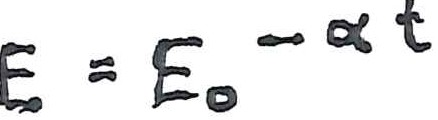 E = E₀⁻ᵅᵗ